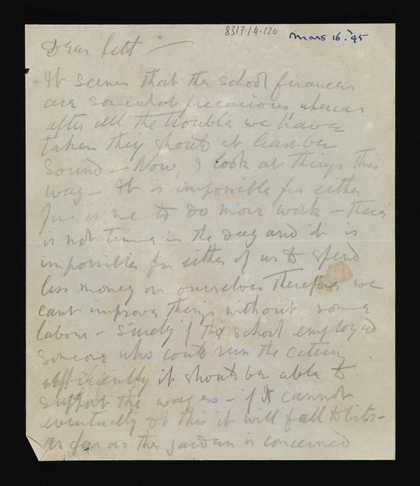 8317.1.4.120
Mars 16. '45
Dear Lett —
It seems that the school finances
are somewhat precarious whereas
after all the trouble we have
taken they should at least be
Sound — Now, I look at things this
way — It is impossible for either
you or me to do more work — there
is not time in the day and it is
impossible for either of us to spend
less money on ourselves Therefore we
cant improve things without some
labour — Surely if the school employed
someone who could run the eating
efficiently it should be able to
support the wages — if it cannot
eventually do this it will fall to bits —
As far as the garden is concerned